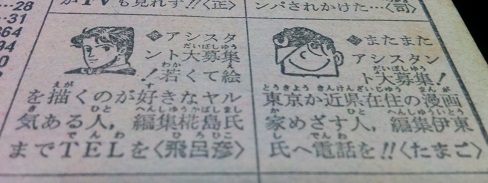 …28
—31
364
94
00
4
がTVも見れず!!〈正〉
ンパされかけた…〈司〉
◆アシスタ
ント大募集
!若くて絵
を描くのが好きなヤル
気ある人，編集椛島氏
までTELを〈飛呂彦〉
◆またまた
アシスタン
ト大募集!
東京か近県在住の漫画
家めざす人，編集伊東
氏へ電話を!!〈たまご〉